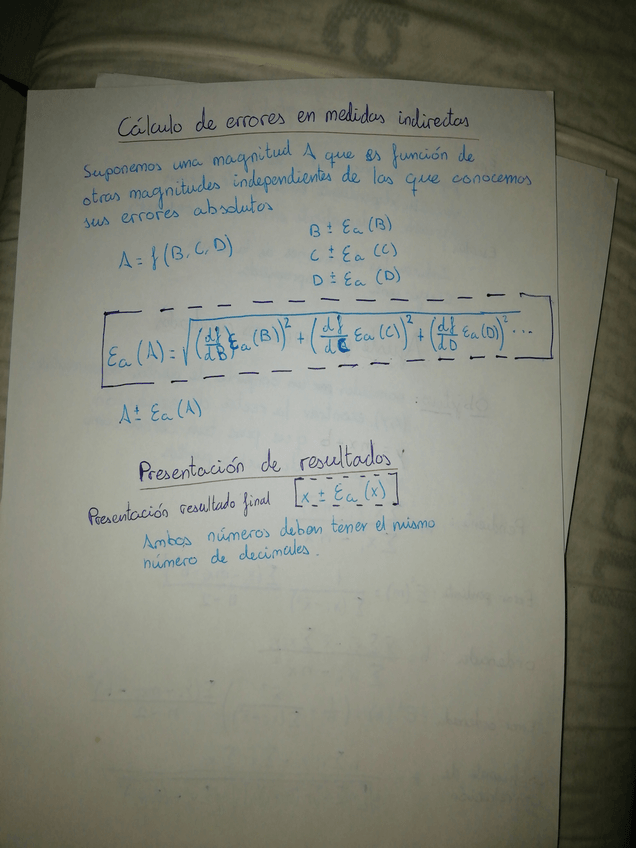 Cálculo de errores en medidas indirectas
Suponemos una magnitud A que es función de
otras magnitudes independientes de las que conocemos
sus errores absolutos
A = f(B, C, D)
B ± Ea (B)
C ± Ea (C)
D ± Ea (D)
Ea (A) = √((df/dB Ea (B))² + (df/dC Ea (C))² + (df/dD Ea (D))² ...
A ± Ea (A)
Presentación de resultados
Presentación resultado final [x ± Ea (x)]
Ambos números deben tener el mismo
número de decimales.